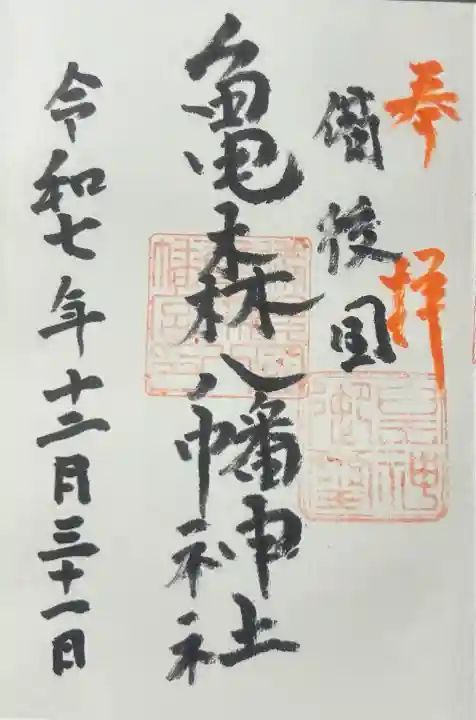 奉拝
備後国
亀森八幡神社
令和七年十二月三十一日